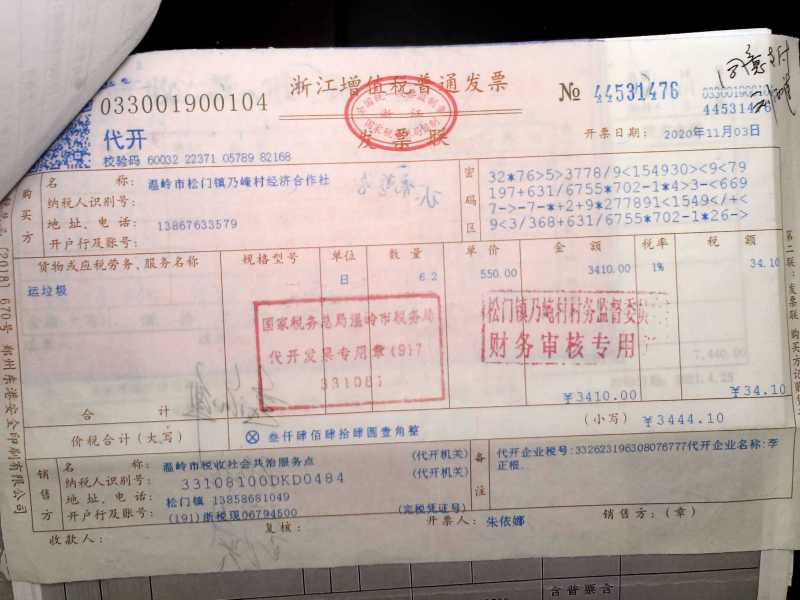 同意支付
033001900104
浙江增值税普通发票
№ 44531476
033001900104
44531476
代开
发票联
开票日期: 2020年11月03日
校验码 60032 22371 05789 82168
购买方
名 称: 温岭市松门镇乃崦村经济合作社
纳税人识别号:
地址、电话: 13867633579
开户行及账号:
密码区
32*76>5>3778/9<154930><9<79
197+631/6755*702-1*4>3-<669
7->-7-*+2+9*277891<1549</+<
9<3/368+631/6755*702-1*26->
货物或应税劳务、服务名称 规格型号 单位 数量 单价 金额 税率 税额
运垃圾 日 6.2 550.00 3410.00 1% 34.10
国家税务总局温岭市税务局
代开发票专用章(9)7
331081
松门镇乃崦村村务监督委
财务审核专用
合 计 ¥3410.00 ¥34.10
价税合计(大写) ⊗ 叁仟肆佰肆拾肆圆壹角整 (小写) ¥3444.10
销售方
名 称: 温岭市税收社会共治服务点 (代开机关)
纳税人识别号: 33108100DKD0484 (代开机关)
地址、电话: 松门镇 13858681049
开户行及账号: (191)浙税现06794500 (完税凭证号)
备注
代开企业税号:332623196308076777代开企业名称:李
正根.
收款人: 复核: 开票人: 朱依娜 销售方:(章)
第二联:发票联 购买方记账
(2018) 670号 郑州东港安全印刷有限公司
7,440.00